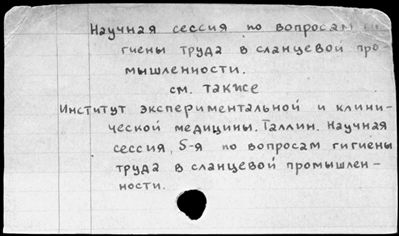 Научная сессия по вопросам ги-
гиены труда в сланцевой про
мышленности.
см. также
Институт экспериментальной и клини-
ческой медицины. Таллин. Научная
сессия, 5-я по вопросам гигиены
труда в сланцевой промышлен-
ности.